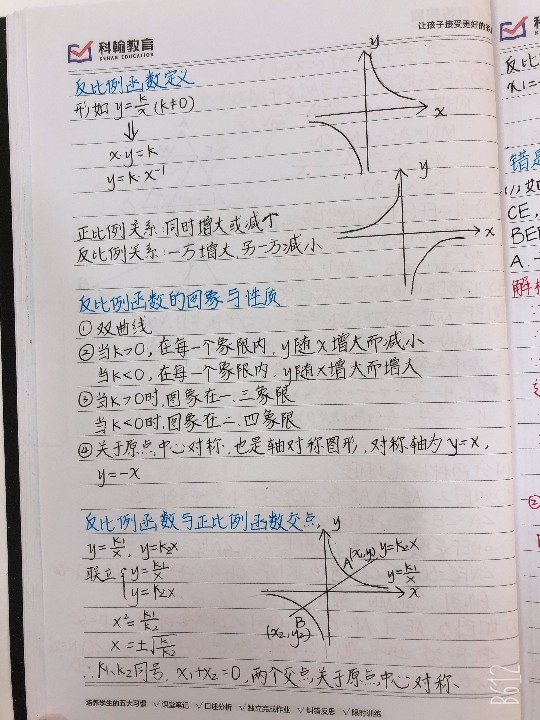 科翰教育
KEHAN EDUCATION
让孩子接受更好的
反比例函数定义
形如 y=k/x (k≠0)
⇓
x·y=k
y=k·x⁻¹
y
x
y
x
正比例关系:同时增大或减个
反比例关系:一方增大,另一方减小
反比例函数的图象与性质
① 双曲线
② 当k>0,在每一个象限内,y随x增大而减小
当k<0,在每一个象限内,y随x增大而增大
③ 当k>0时,图象在一.三象限
当k<0时,图象在二.四象限
④ 关于原点中心对称,也是轴对称图形,对称轴为y=x,
y=-x
反比例函数与正比例函数交点
y=k₁/x, y=k₂x
联立 { y=k₁/x
y=k₂x
x²=k₁/k₂
x=±√k₁/k₂
y
A(x₁,y₁) y=k₂x
y=k₁/x
x
B
(x₂,y₂)
∴k₁,k₂同号, x₁+x₂=0,两个交点关于原点中心对称.
培养学生的五大习惯 √课堂笔记 √口述分析 √独立完成作业 √纠错反思 √限时训练
反比
x₁=-
错是
(1)如
CE,
BE
A.
解析
②
B612